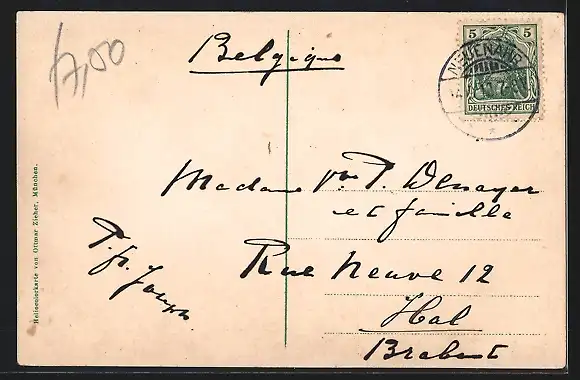 7,00
Belgique
5 5
NEUENAHR
DEUTSCHES REICH
Madame Vve P.
et famille
Rue Neuve 12
Hal
Brabant
Joseph
Heliocolorkarte von Ottmar Zieher, München.